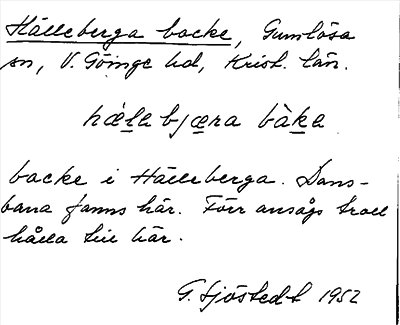 Hälleberga backe, Gumlösa
sn, V. Göinge hd, Krist. län.
hæ̀labjæra bàka
backe i Hälleberga. Dans-
bana fanns här. Förr ansågs troll
hålla till här.
G. Sjöstedt 1952